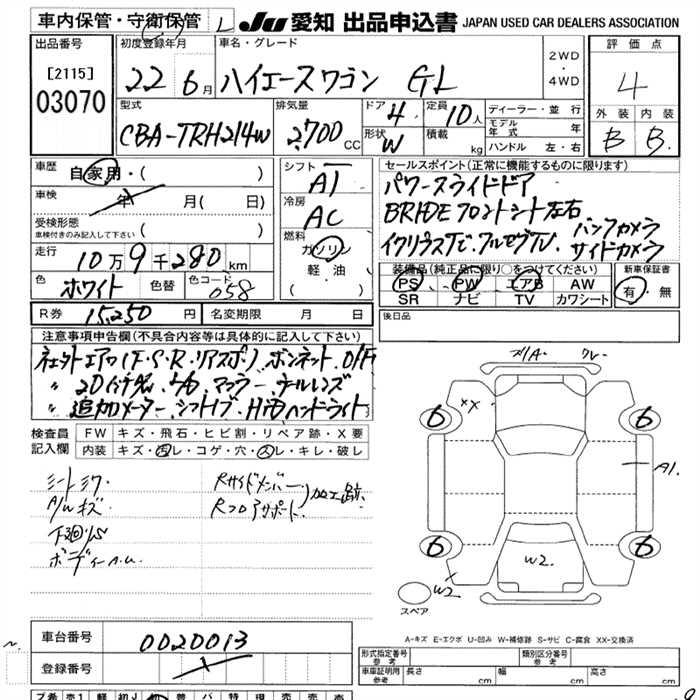 車内保管・守衛保管 L JU 愛知 出品申込書 JAPAN USED CAR DEALERS ASSOCIATION
出品番号 [2115] 03070
初度登録年月 22 6月
車名・グレード ハイエースワゴン GL
2WD・4WD
評価点 4
外装 B 内装 B
型式 CBA-TRH214W
排気量 2700 CC
ドア 4
形状 W
定員 10人
積載 kg
ディーラー・並行
モデル年式 年
ハンドル 左・右
車歴 自家用・( )
車検 年 月( 日)
受検形態 車検付きのみ記入して下さい ( )
走行 10万9千280km
色 ホワイト 色替 色コード 058
R券 15,250円 名変期限 月 日
シフト AT
冷房 AC
燃料 ガソリン 軽油( )
セールスポイント(正常に機能するものに限ります)
パワースライドドア
BRIDEフロントシート左右
バックカメラ
サイドカメラ
装備品(純正品に限り○をつけてください)
PS PW エアB AW
SR ナビ TV カワシート
新車保証書 有・無
後日品
注意事項申告欄(不具合内容等は具体的に記入して下さい)
ネェットエアロ(F・S・R・リアスポ)ボンネット・O/F
〃 20インチ マフラー テールレンズ
〃 追加メーター シフトノブ HIDヘッドライト
検査員記入欄
FW キズ・飛石・ヒビ割・リペア跡・X要
内装 キズ・凹レ・コゲ・穴・スレ・キレ・破レ
シートシワ
A/Wキズ
下回りS
ボディーA.U.
Rサイドメンバー
Rフロアサポート
加工跡
A ワレ
XX
6 6
A1.
6 6
W2.
W2
スペア
A-キズ E-エクボ U-凹み W-補修跡 S-サビ C-腐食 XX-交換済
車台番号 0020013
登録番号
形式指定番号 参考 類別区分番号 参考
車検証記載 参考 長さ cm 幅 cm 高さ cm